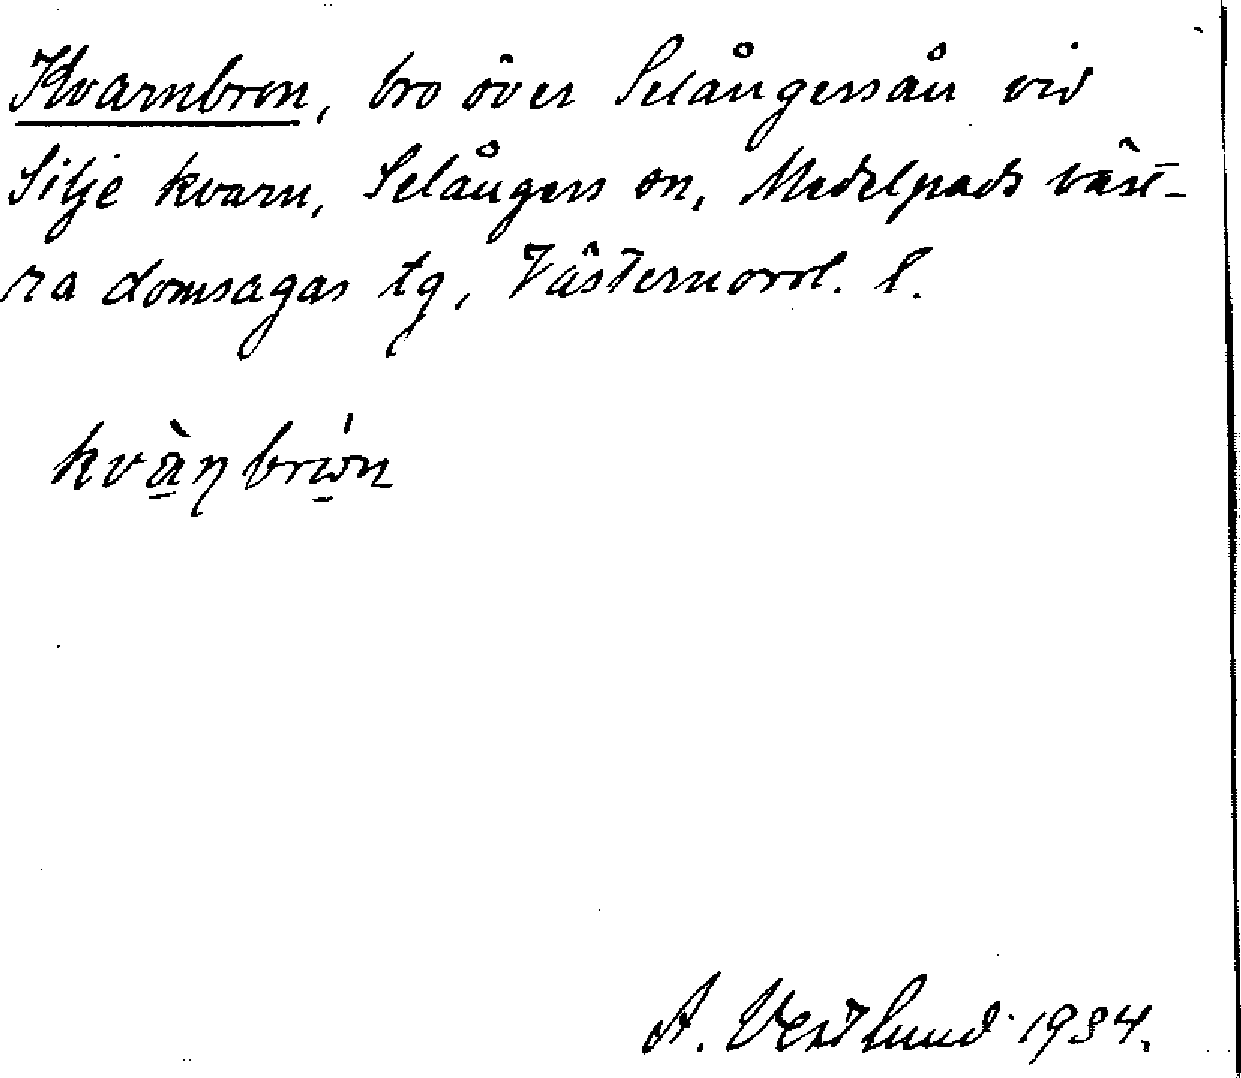 Kvarnbron, bro över Selångersån vid
Silje kvarn, Selångers sn, Medelpads väst-
ra domsagas tg, Västernorrl. l.
kvànbrón
A. Vestlund 1934.